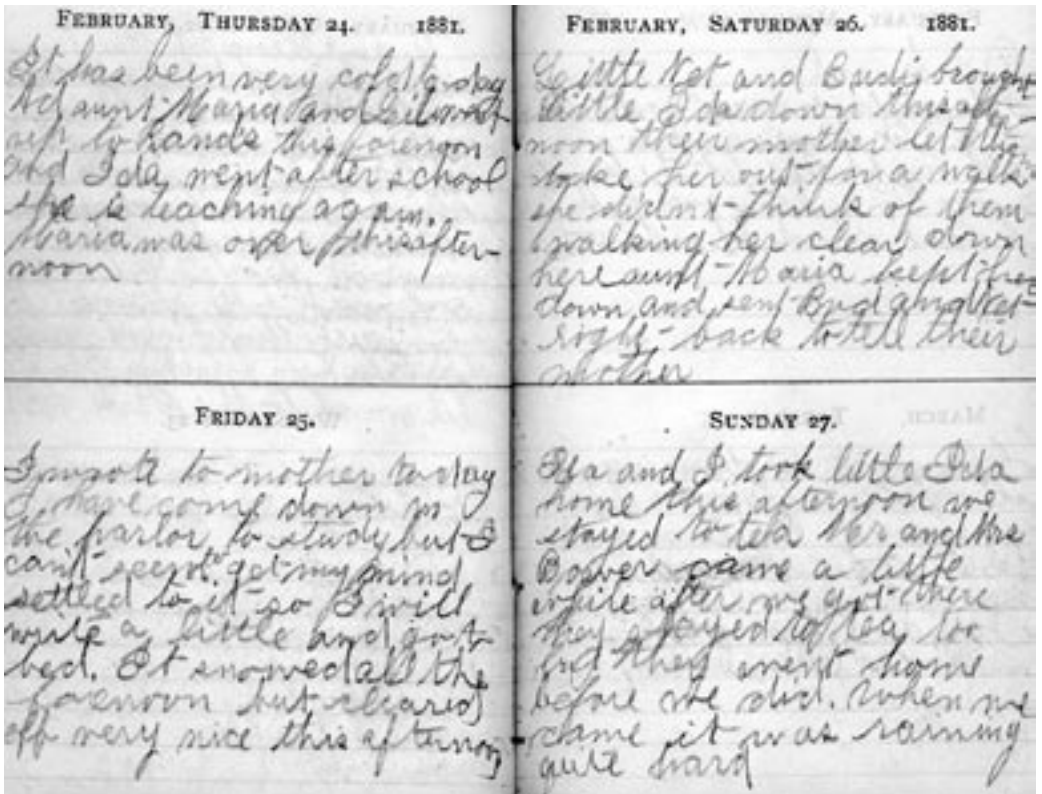 FEBRUARY, THURSDAY 24. 1881.
It has been very cold to day
aunt Maria and
to hands this forenoon
and Ida went after school
she is teaching again.
Maria was over this after-
noon
FRIDAY 25.
I wrote to mother to day
I have come down in
the parlor to study but I
can't seem to get my mind
settled to it so I will
write a little and go to
bed. It snowed all the
forenoon but cleared
off very nice this afternoon
FEBRUARY, SATURDAY 26. 1881.
Little Net and brought
little Ida down this after-
noon their mother let them
take her out for a walk
she didn't think of them
walking her clear down
here aunt Maria kept her
down and sent Bud and Net
right back to tell their
mother
SUNDAY 27.
Ida and I took little Ida
home this afternoon we
stayed to tea Mr and Mrs
came a little
while after we got there
they stayed to tea too
and they went home
before we did. When we
came it was raining
quite hard